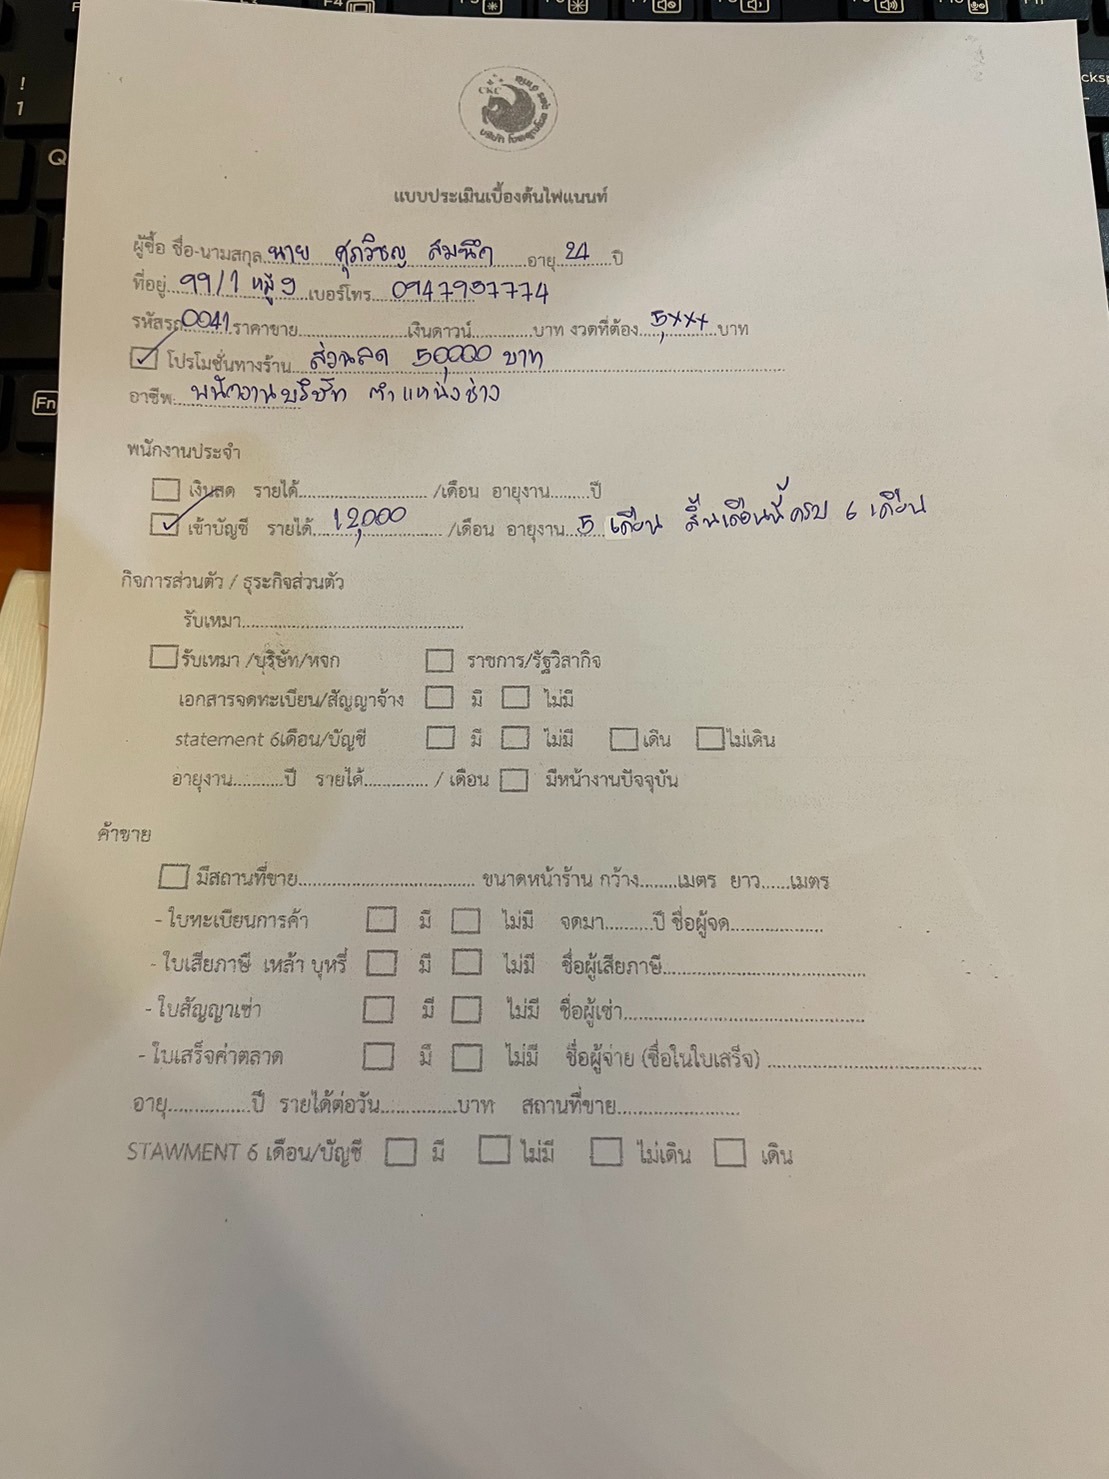 CKC
แบบประเมินเบื้องต้นไฟแนนท์
ผู้ซื้อ ชื่อ-นามสกุล นาย ศุภวิชญ สมนึก อายุ 24 ปี
ที่อยู่ 99/1 หมู่ 9 เบอร์โทร 0947957774
รหัสรถ 0041 ราคาขาย เงินดาวน์ บาท งวดที่ต้อง 5,xxx บาท
โปรโมชั่นทางร้าน ส่วนลด 50,000 บาท
อาชีพ: พนักงานบริษัท ตำแหน่งช่าง
พนักงานประจำ
เงินสด รายได้ /เดือน อายุงาน ปี
เข้าบัญชี รายได้ 12,000 /เดือน อายุงาน 5 เดือน สิ้นเดือนนี้ครบ 6 เดือน
กิจการส่วนตัว / ธุระกิจส่วนตัว
รับเหมา
รับเหมา /บริษัท/หจก ราชการ/รัฐวิสากิจ
เอกสารจดทะเบียน/สัญญาจ้าง มี ไม่มี
statement 6เดือน/บัญชี มี ไม่มี เดิน ไม่เดิน
อายุงาน ปี รายได้ / เดือน มีหน้างานปัจจุบัน
ค้าขาย
มีสถานที่ขาย ขนาดหน้าร้าน กว้าง เมตร ยาว เมตร
- ใบทะเบียนการค้า มี ไม่มี จดมา ปี ชื่อผู้จด
- ใบเสียภาษี เหล้า บุหรี่ มี ไม่มี ชื่อผู้เสียภาษี
- ใบสัญญาเช่า มี ไม่มี ชื่อผู้เช่า
- ใบเสร็จค่าตลาด มี ไม่มี ชื่อผู้จ่าย (ชื่อในใบเสร็จ)
อายุ ปี รายได้ต่อวัน บาท สถานที่ขาย
STAWMENT 6 เดือน/บัญชี มี ไม่มี ไม่เดิน เดิน